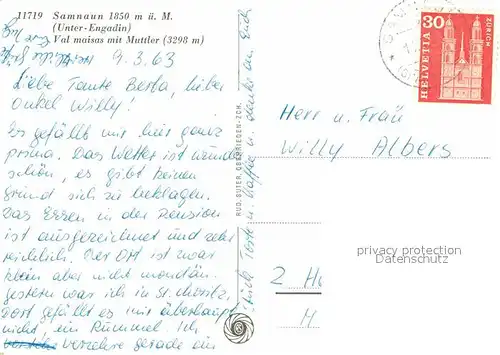 11719 Samnaun 1850 m ü. M.
(Unter-Engadin)
Val maisas mit Muttler (3298 m)
9.3.63
Liebe Tante Berta, lieber
Onkel Willy!
Es gefällt mir hier ganz
prima. Das Wetter ist wunder
schön, es gibt keinen
Grund sich zu beklagen.
Das Essen in der Pension
ist ausgezeichnet und sehr
reichlich. Der Ort ist zwar
klein aber nicht mondän.
Gestern war ich in St. Moritz.
Dort gefällt es mir überhaupt
nicht, ein Rummel. Ich
verzehre gerade ein
Torte u. Kaffee u. denke an Euch
RUD. SUTER, OBERRIEDEN-ZCH.
30
HELVETIA
ZÜRICH
Herr u. Frau
Willy Albers
privacy protection
Datenschutz
2 H
H